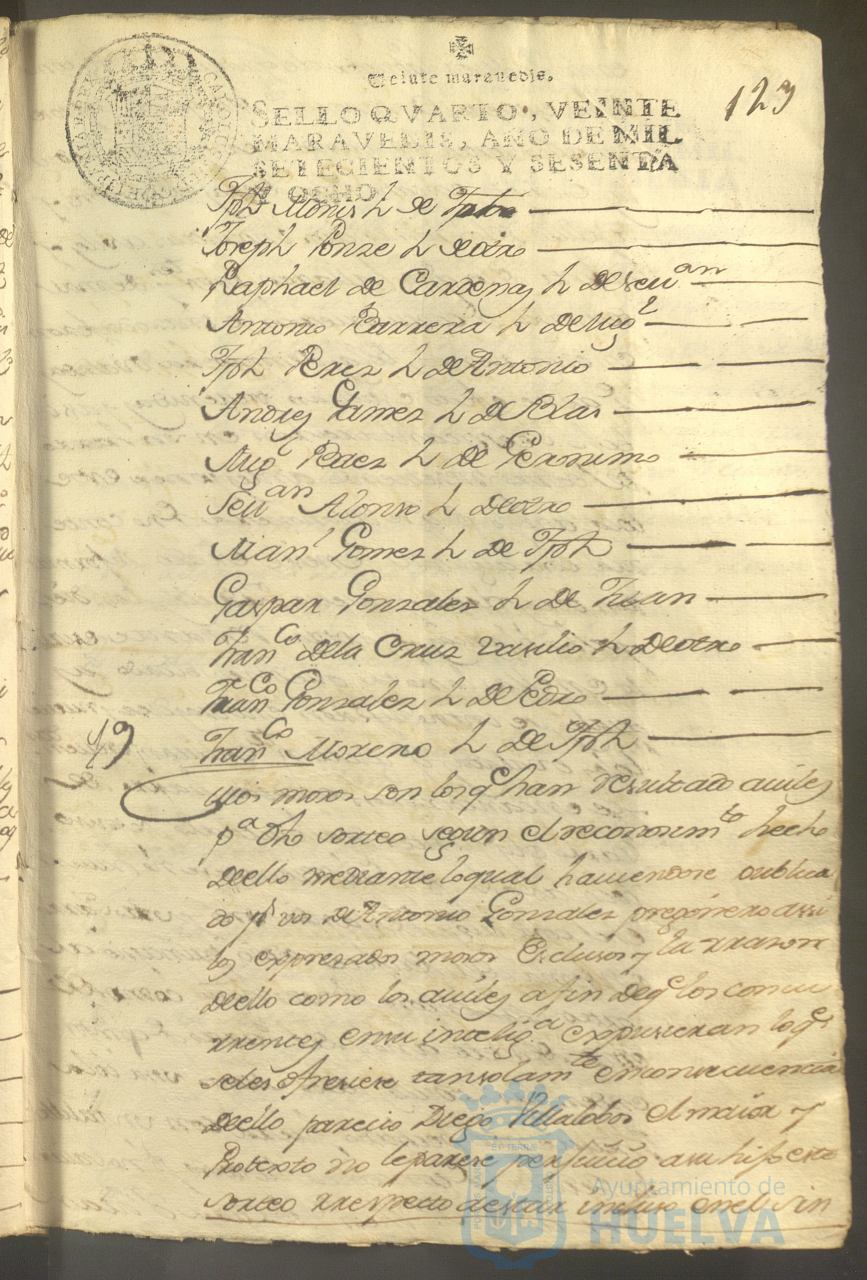 Veinte maravedis.
SELLO QVARTO, VEINTE
MARAVEDIS, AÑO DE MIL
SETECIENTOS Y SESENTA
Y OCHO
123
Jph Mons h de
Joseph Ponze h de otro
Raphael de Cardenas h de Seuan
Antonio Barrera h de Migl
Jph Perez h de Antonio
Andres Gamez h de Blas
Migl Paez h de Geronimo
Seuan Alonso h de otro
Manl Gomez h de Jph
Gaspar Gonzales h de Juan
Franco de la Cruz Vasilio h de otro
Franco Gonzalez h de Pedro
49 Franco Moreno h de Jph
mos mozos son los q han resultado auiles
pa dho sorteo segun el reconocimto hecho
de ello mediante lo qual hauiendose publica
do pr voz de Antonio Gonzalez pregonero assi
los expresados mozos Exclusos y la rrazon
de ello como los auiles a fin de q los concu
rrentes en su inteliga expusieran lo q
se les ofreziese tan solamte en consecuencia
de ello parecio Diego Villalobos el maior y
Protexto no le parase perjuicio a su hijo este
sorteo rrespecto a estar incluso en el sin
Ayuntamiento de
HUELVA